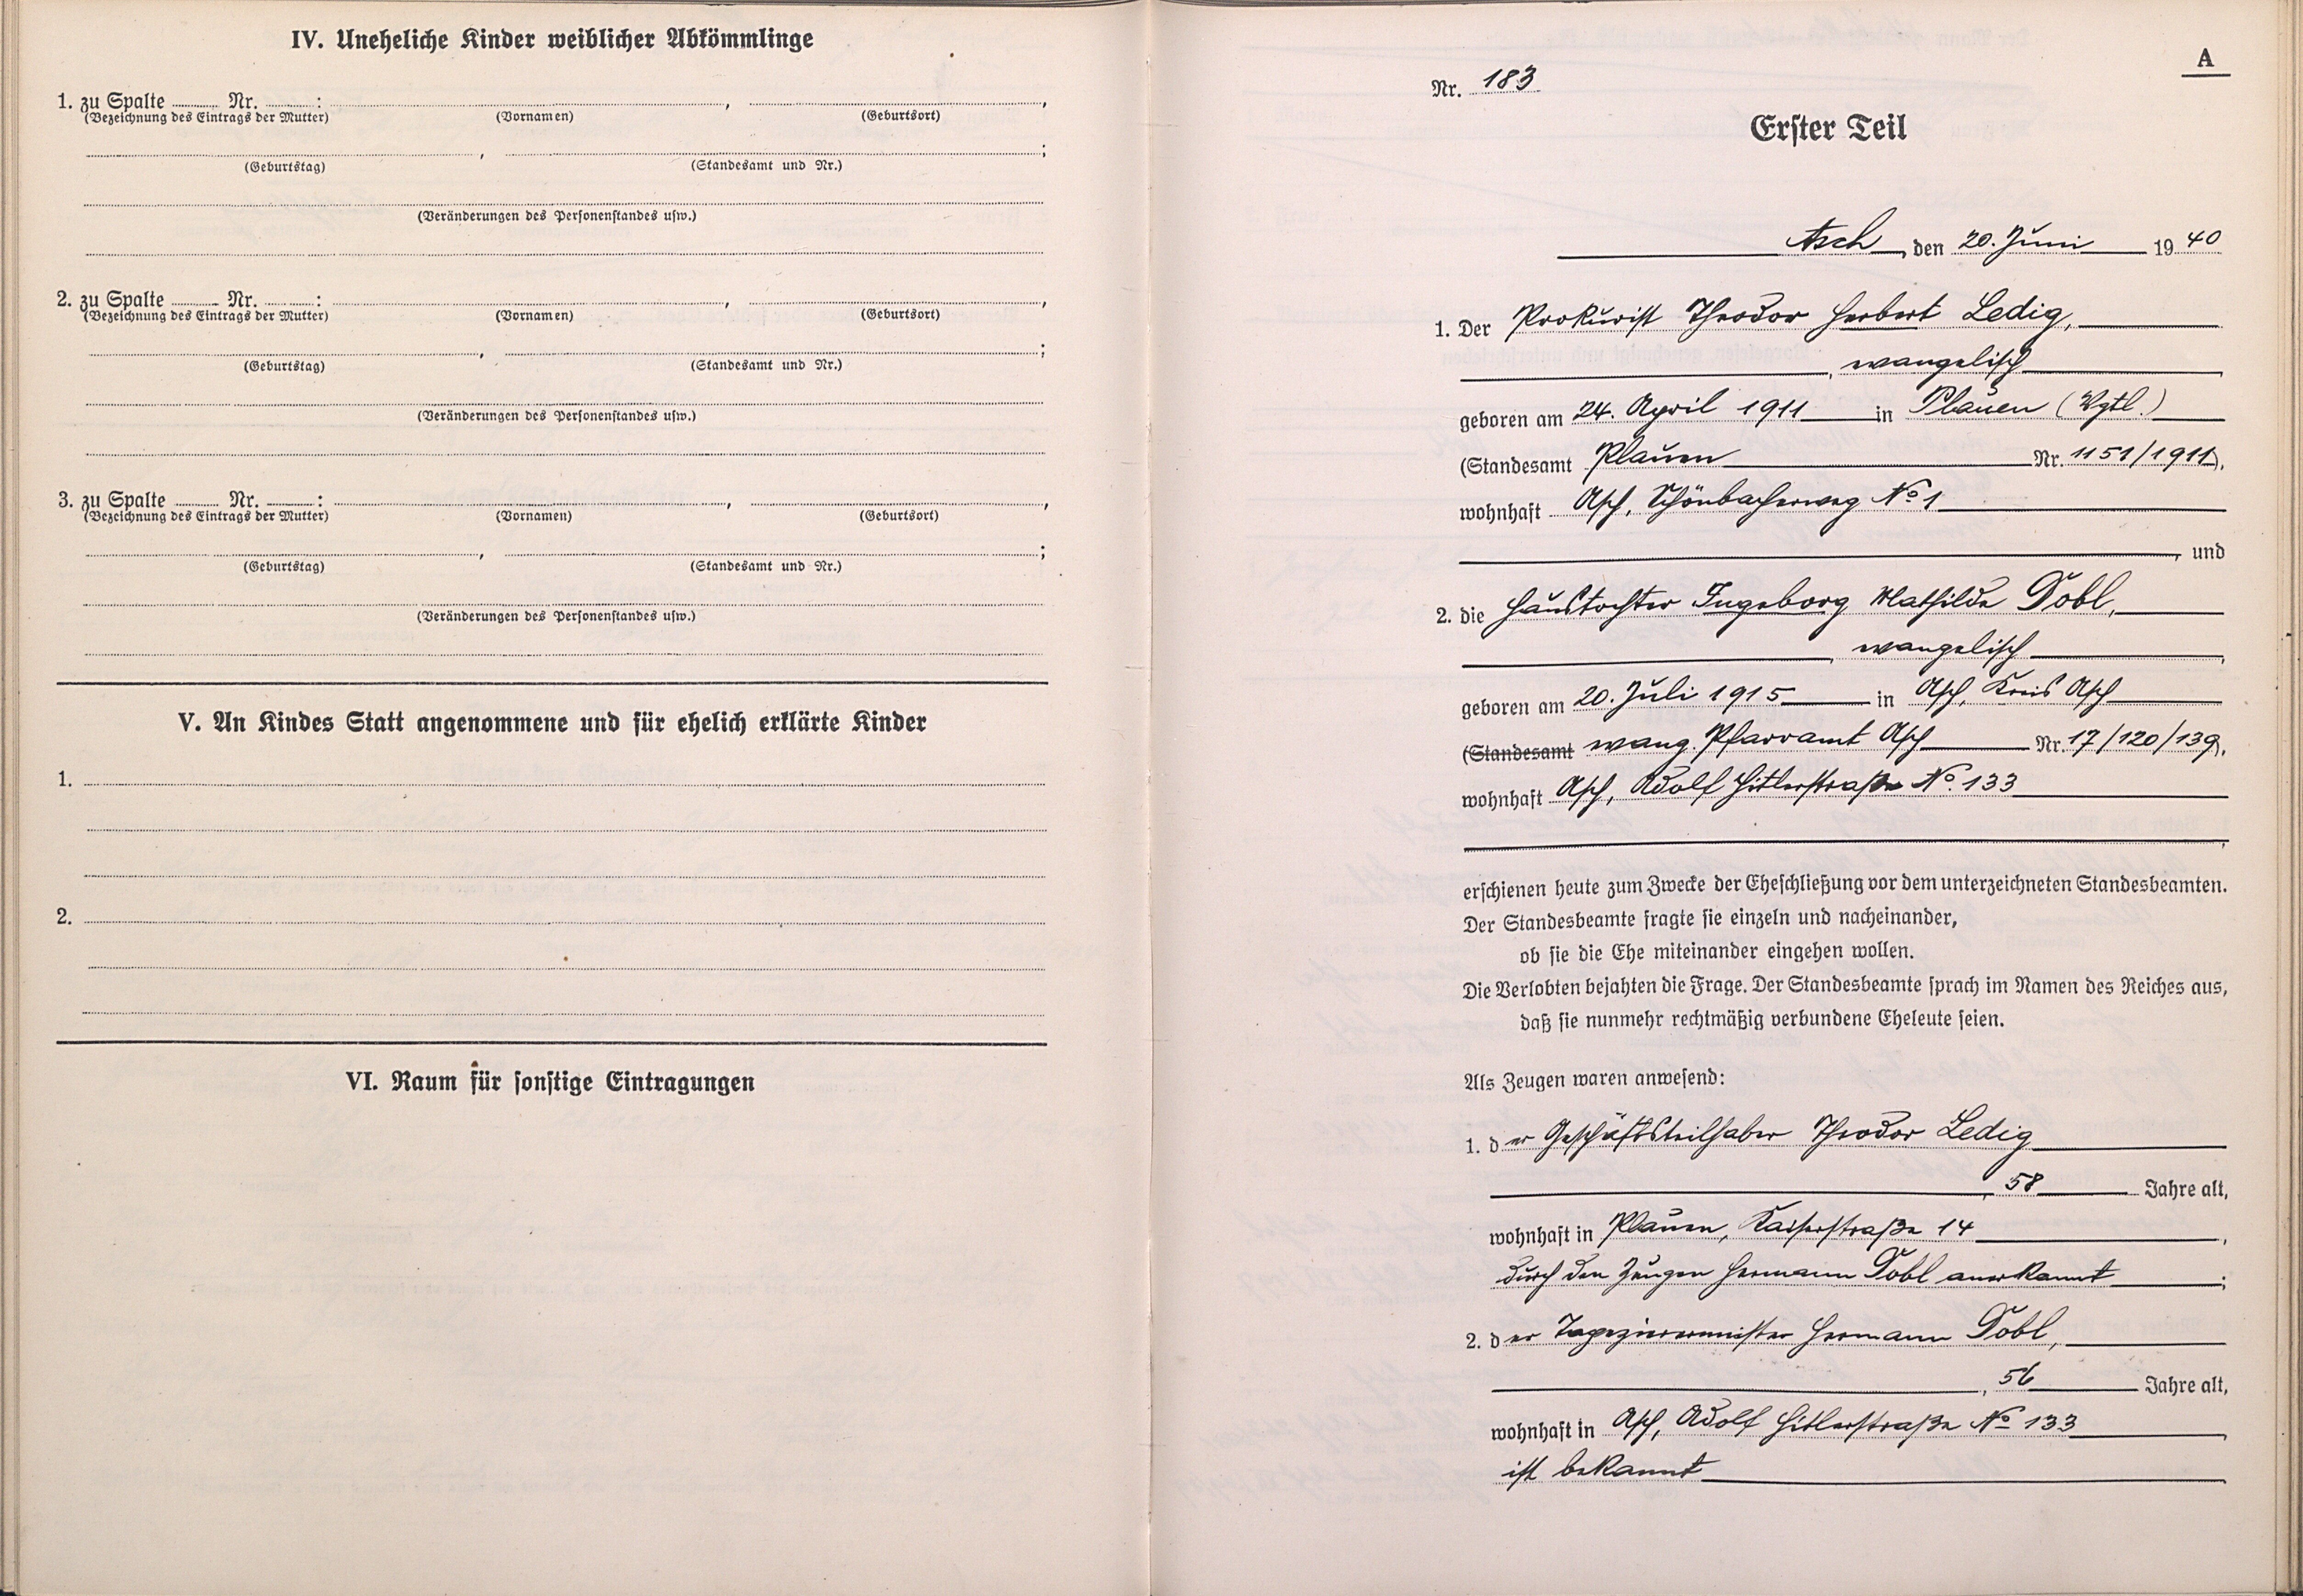 IV. Uneheliche Kinder weiblicher Abkömmlinge
1. zu Spalte ........ Nr. ........ : ........, ........,
(Bezeichnung des Eintrags der Mutter) (Vornamen) (Geburtsort)
........, ........;
(Geburtstag) (Standesamt und Nr.)
(Veränderungen des Personenstandes usw.)
2. zu Spalte ........ Nr. ........ : ........, ........,
(Bezeichnung des Eintrags der Mutter) (Vornamen) (Geburtsort)
........, ........;
(Geburtstag) (Standesamt und Nr.)
(Veränderungen des Personenstandes usw.)
3. zu Spalte ........ Nr. ........ : ........, ........,
(Bezeichnung des Eintrags der Mutter) (Vornamen) (Geburtsort)
........, ........;
(Geburtstag) (Standesamt und Nr.)
(Veränderungen des Personenstandes usw.)
V. An Kindes Statt angenommene und für ehelich erklärte Kinder
1.
2.
VI. Raum für sonstige Eintragungen
A
Nr. 183
Erster Teil
Asch, den 20. Juni 1940
1. Der Prokurist Theodor Herbert Ledig,
, evangelisch,
geboren am 24. April 1911 in Plauen (Vgtl.)
(Standesamt Plauen Nr. 1151/1911),
wohnhaft Asch, Schönbacherweg No 1
, und
2. die Haustochter Ingeborg Mathilde Dobl,
, evangelisch,
geboren am 20. Juli 1915 in Asch, Kreis Asch
(Standesamt evang. Pfarramt Asch Nr. 17/120/139),
wohnhaft Asch, Adolf Hitlerstraße No. 133
,
erschienen heute zum Zwecke der Eheschließung vor dem unterzeichneten Standesbeamten.
Der Standesbeamte fragte sie einzeln und nacheinander,
ob sie die Ehe miteinander eingehen wollen.
Die Verlobten bejahten die Frage. Der Standesbeamte sprach im Namen des Reiches aus,
daß sie nunmehr rechtmäßig verbundene Eheleute seien.
Als Zeugen waren anwesend:
1. der Geschäftsteilhaber Theodor Ledig
, 58 Jahre alt,
wohnhaft in Plauen, Kaiserstraße 14,
durch den Zeugen Hermann Dobl anerkannt;
2. der Tapezierermeister Hermann Dobl,
, 56 Jahre alt,
wohnhaft in Asch, Adolf Hitlerstraße No 133,
ist bekannt